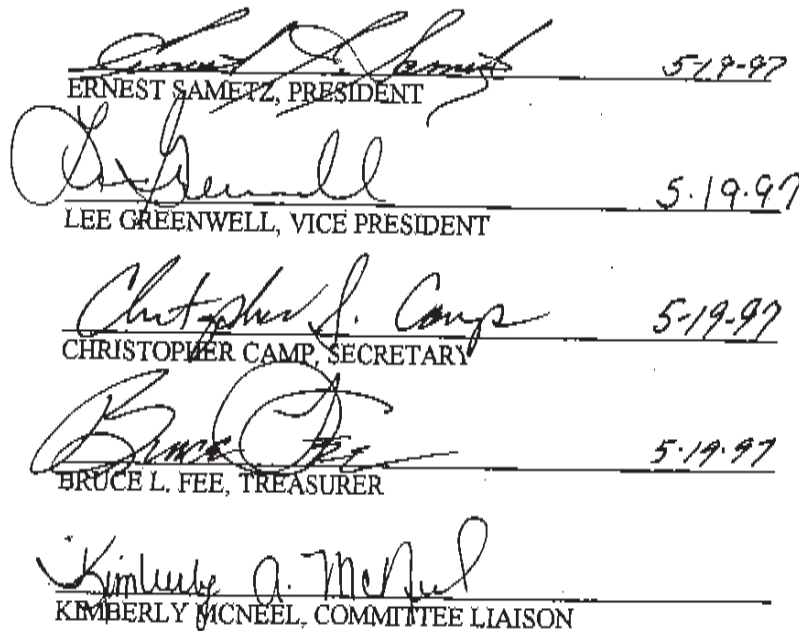 Ernest S. Sametz 5-19-97
ERNEST SAMETZ, PRESIDENT
Lee Greenwell 5.19.97
LEE GREENWELL, VICE PRESIDENT
Christopher J. Camp 5-19-97
CHRISTOPHER CAMP, SECRETARY
Bruce Fee 5.19.97
BRUCE L. FEE, TREASURER
Kimberly A. McNeel
KIMBERLY MCNEEL, COMMITTEE LIAISON